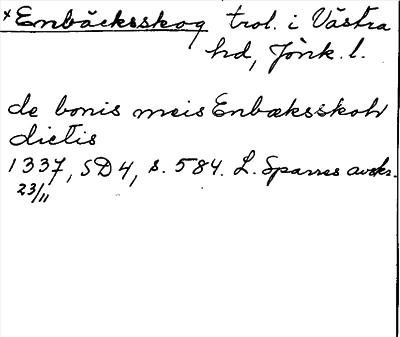 *Enbäcksskog trol. i Västra
hd, Jönk. l.
de bonis meis Enbæksskoh
dictis
1337, SD 4, s. 584. L. Sparres avskr.
23/11